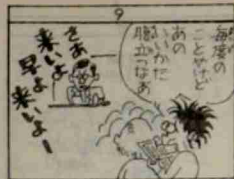 9
毎度の
ことやけど
あの
いいかた
腹立つなあ
さあ
来いよ
早よ
来いよー